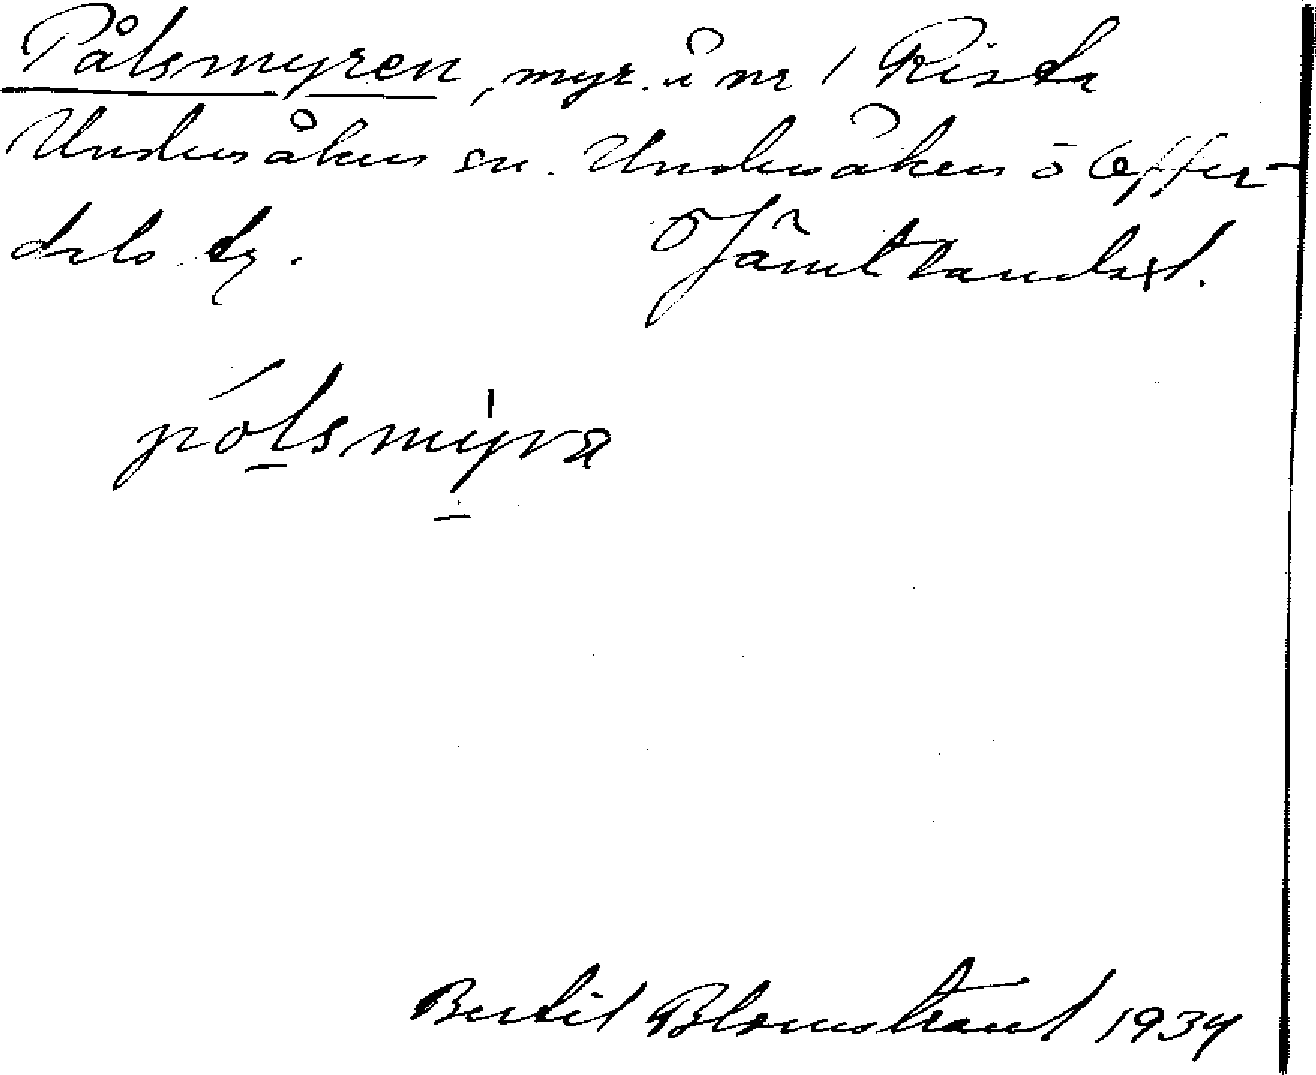 Pålsmyren, myr i nr 1 Rista
Undersåkers sn. Undersåkers o Offer-
dals tg. Jämtlands l.
pólsmýra
Bertil Blomstrand 1934